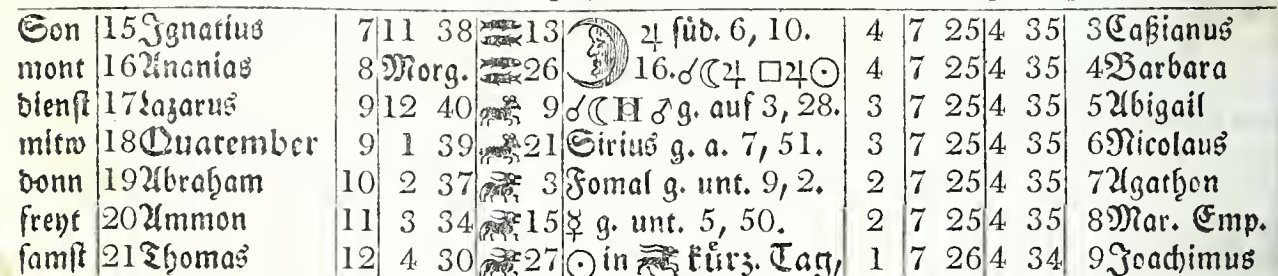 Son 15 Ignatius 7 11 38 13 ♃ süd. 6, 10. 4 7 25 4 35 3 Caßianus
mont 16 Ananias 8 Morg. 26 16. ☌☾♃ □♃☉ 4 7 25 4 35 4 Barbara
dienst 17 Lazarus 9 12 40 9 ☌☾H ♂ g. auf 3, 28. 3 7 25 4 35 5 Abigail
mitw 18 Quatember 9 1 39 21 Sirius g. a. 7, 51. 3 7 25 4 35 6 Nicolaus
donn 19 Abraham 10 2 37 3 Fomal g. unt. 9, 2. 2 7 25 4 35 7 Agathon
freyt 20 Ammon 11 3 34 15 ☿ g. unt. 5, 50. 2 7 25 4 35 8 Mar. Emp.
samst 21 Thomas 12 4 30 27 ☉ in ♑ kürz. Tag, 1 7 26 4 34 9 Joachimus